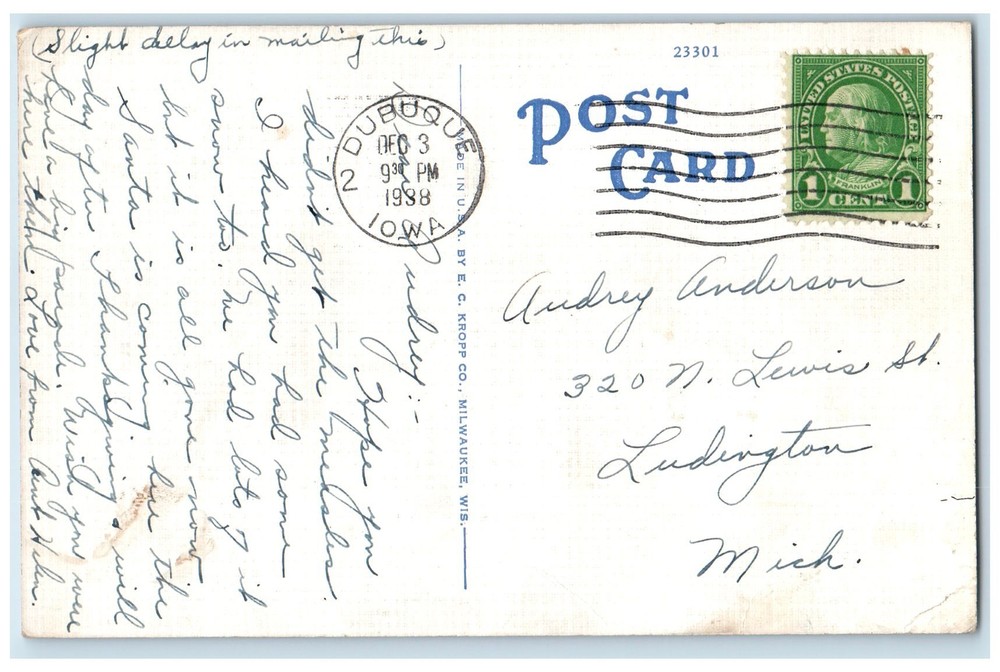 (Slight delay in mailing this)
Audrey:-
Hope you
didn't get the measles.
I heard you had some
snow too. We had lots of it
but it is all gone now
Santa is coming here the
day after Thanksgiving & will
have a big parade. Wish you were
here to see it. Love from Aunt Helen.
23301
POST
CARD
DUBUQUE
DEC 3
9 30 PM
1938
2
IOWA
MADE IN U.S.A. BY E. C. KROPP CO., MILWAUKEE, WIS.
UNITED STATES POSTAGE
FRANKLIN
1 CENT 1
Audrey Anderson
320 N. Lewis St.
Ludington
Mich.